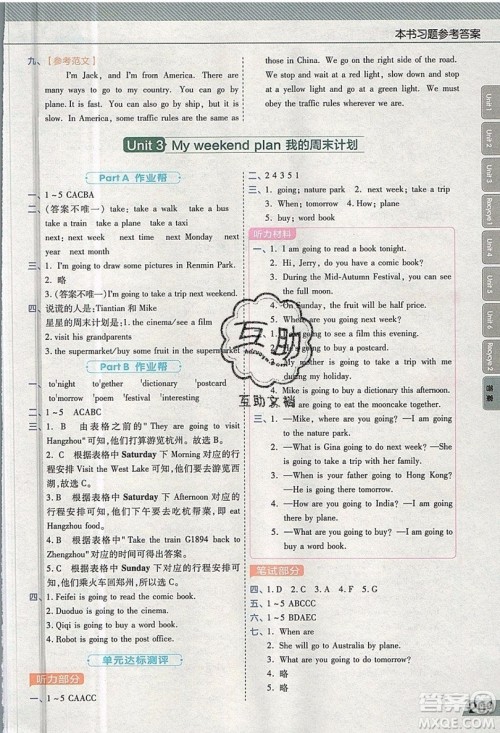 本书习题参考答案
九、【参考范文】
I'm Jack, and I'm from America. There are
many ways to go to many places. If the
place is far, we can go there by train or by
plane. It is fast.
In America, we must obey the traffic rules.
those in China. We go on the right side of the road.
We stop and wait at a red light, slow down and stop
at a yellow light and go at a green light. Everyone
must obey the traffic rules because life is
Unit 3 My weekend plan 我的周末计划
Part A 作业帮
一、1~5 CACBA
二、(答案不唯一) take: take a walk take a bus
take a train take a plane take a taxi
next: next week next Monday next year
next weekend
三、1. I'm going to draw pictures in Renmin Park.
2. 略
3. (答案不唯一) I'm going to take a trip next weekend.
四、说谎的人是: Tiantian 和 Mike
星星的周末计划是: 1. the cinema/see a film
2. visit his grandparents
3. the supermarket/buy some fruit in the supermarket
Part B 作业帮
一、to'night to'gether 'dictionary
to'morrow 'poem 'festival 'interesting
二、1~5 ACABC
三、1. B 由表格之前的"They are going to visit
Hangzhou"可知,他们打算游览杭州。故选B。
2. B 根据表格中 Saturday 下 Morning 的行
程安排 Visit the West Lake 可知答案。
3. B 根据表格中 Saturday 下 Afternoon 的
行程安排可知,他们要去吃杭帮菜,即 eat
Hangzhou food.
4. B 根据"Take the train G1894 back to
Zhengzhou"对应的时间可得出答案。
5. B 根据表格中 Sunday 下的行程安排可
知,他们乘火车回郑州。
四、1. Feifei is going to read the comic book.
2. Duoduo is going to see a film.
3. Qiqi is going to buy a word book.
4. Robot is going to play on the computer.
单元达标测评
听力部分
一、1~5 CAACC
二、2 4 3 5 1
三、1. going; nature park 2. next week; take a trip
3. When; going 4. going to; tomorrow
5. buy; word book
听力材料
一、1. I am going to read a book tonight.
2. Hi, Jerry, do you have a comic book?
3. During the Mid-Autumn Festival, you can see
the full moon.
4. On Sunday, the fruit will be half price.
5. We are going to see a film this evening.
I am going to buy a postcard.
my mother is going to take a trip with me
during my holiday.
I am going to make a snowman.
三、1. —Mike, where are you going?
—I am going to the nature park.
2. —What is Gina going to do next week?
—She is going to take a trip.
3. —When are you going to Hong Kong?
—I am going tomorrow.
4. —Are you going to India?
—Yes, I am going to India tomorrow.
5. —What are you going to buy?
—I am going to buy a word book.
笔试部分
四、1. D 2. C 3. A 4. F 5. G
五、1~5 ABCCC
六、1~5 BDAEC
七、1. When are
2. She is going to Australia by plane.
3. What are you going to do tomorrow?
4. 略
5. 略
Unit 1
Unit 2
Unit 3
Recycle 1
Unit 4
Unit 5
Unit 6
Recycle 2
答案
互助
互助文档
作业帮
MXQE.COM